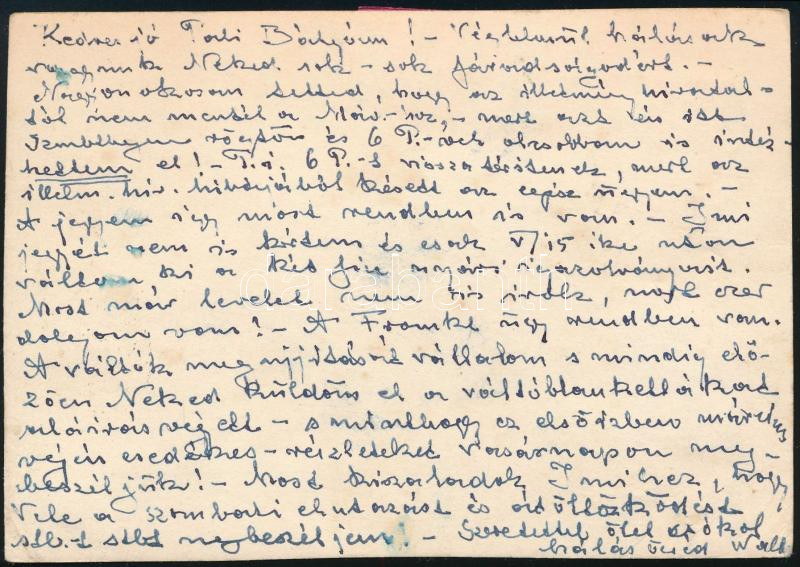 Kedves jó Tati Bátyám! - Végtelenül hálásak
vagyunk Neked sok-sok fáradságodért. -
Nagyon okosan tetted, hogy az illetményhivatal-
tól nem mentél a Máv-hoz, - mert azt én itt
Szombathelyen rögtön és 6 P.-vel olcsóbban is intéz-
hettem el! - T.i. 6 P.-t visszatérítenek, mert az
illetm. hiv. hibájából késett az egész ügyem. -
A jegyem így most rendben is van. - Imi
jegyét nem is kértem és csak V/15 ike után
váltom ki a két fiú nyári igazolványait.
Most már levelet nem is írok, mert ezer
dolgom van! - A Frank ügy rendben van.
A váltók megújítását vállalom s mindig elő-
zően Neked küldöm el a váltóblankettákat
aláírás végett - s minthogy ez elsőízben március
végén esedékes - részleteket vasárnapon meg-
beszéljük! - Most kiszaladok Imihez, hogy
Vele a szombati elutazást és átöltözködést
stb.-t stbt megbeszéljem! - Szeretettel ölel csókol
hálás öcséd